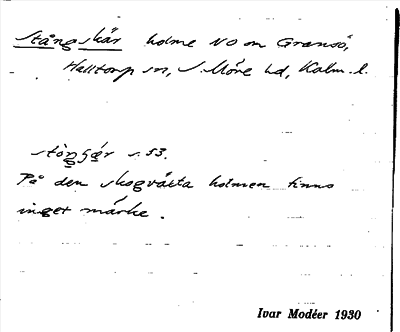 Stångskär holme NO om Grensö,
Halltorp sn, S. Möre hd, Kalm. l.
stòŋʃę́r s. 53.
På den skogväxta holmen finns
inget märke.
Ivar Modéer 1930